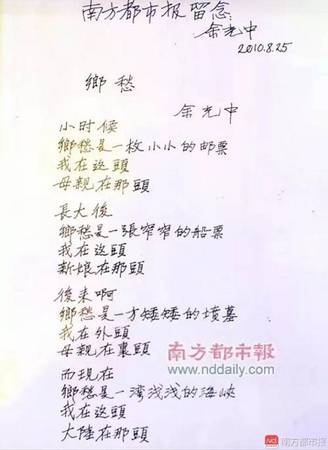 南方都市报留念:
余光中
2010.8.25
鄉愁
余光中
小时候
鄉愁是一枚小小的邮票
我在这頭
母親在那頭
長大後
鄉愁是一張窄窄的船票
我在这頭
新娘在那頭
後来啊
鄉愁是一方矮矮的墳墓
我在外頭
母親在裏頭
而現在
鄉愁是一湾浅浅的海峡
我在这頭
大陸在那頭
南方都市報
www.nddaily.com
南方都市报